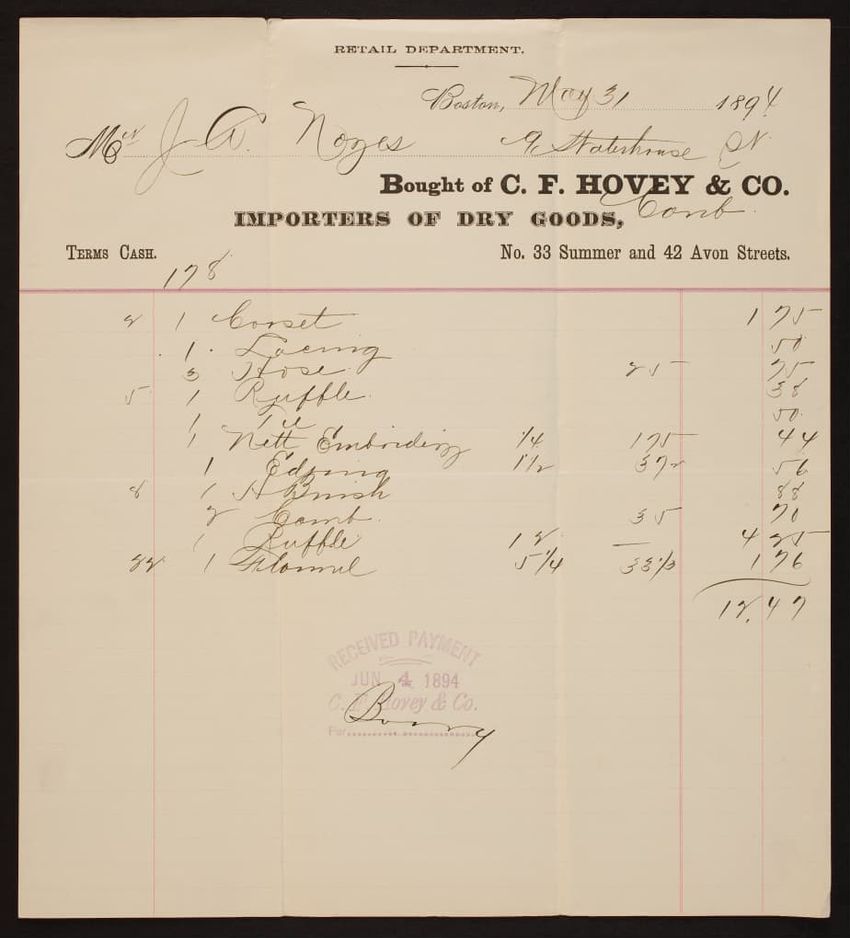 RETAIL DEPARTMENT.
Boston, May 31 1894
Mrs J. A. Noyes 9 Waterhouse St
Bought of C. F. HOVEY & CO.
Camb.
IMPORTERS OF DRY GOODS,
TERMS CASH. No. 33 Summer and 42 Avon Streets.
178
2 1 Corset 1 75
1 Lacing 50
3 Hose 25 75
5 1 Ruffle 38
1 " 50
1 Nett Embroidery 1/4 175 44
1 Edging 1 1/2 37 1/2 56
8 1 H Brush 88
2 Comb 35 70
1 Ruffle 12 4 25
22 1 Flannel 5 1/4 33 1/3 1 76
12.47
RECEIVED PAYMENT
JUN 4 1894
C. F. Hovey & Co.
For